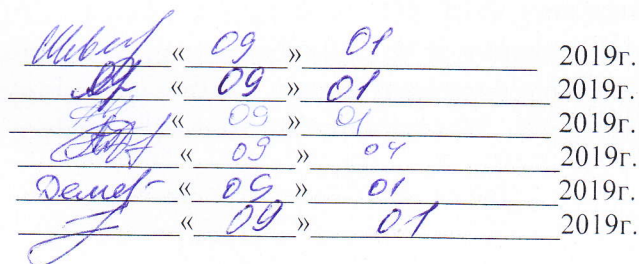 « 09 » 01 2019г.
« 09 » 01 2019г.
« 09 » 01 2019г.
« 09 » 04 2019г.
« 09 » 01 2019г.
« 09 » 01 2019г.